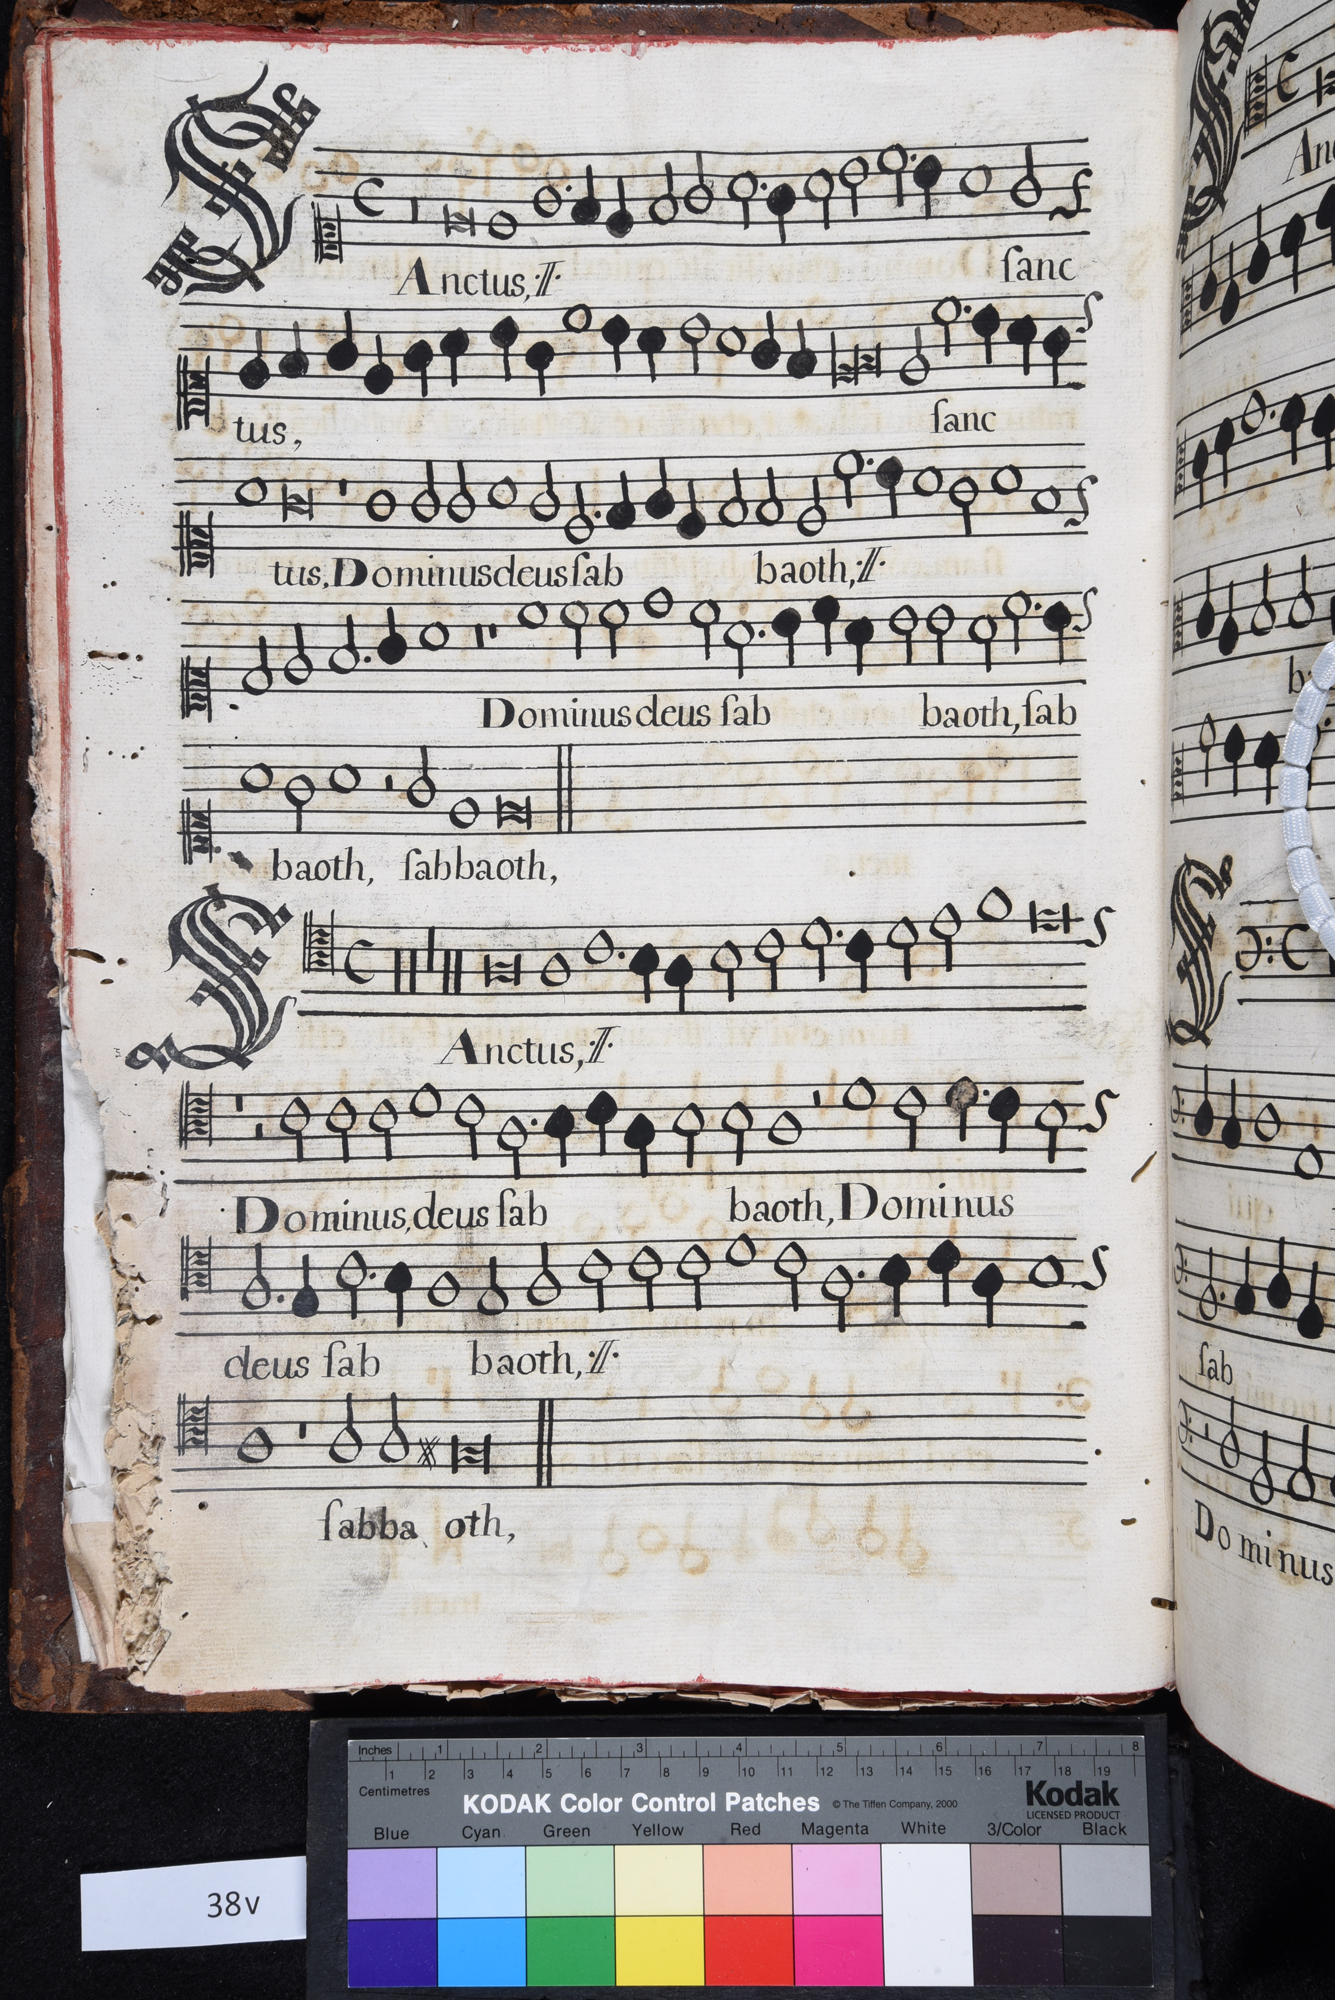 SAnctus, :||: ſanc
tus, ſanc
tus, Dominus deus ſab baoth, :||:
Dominus deus ſab baoth, ſab
baoth, ſabbaoth,
SAnctus, :||:
Dominus, deus ſab baoth, Dominus
deus ſab baoth, :||:
ſabba oth,
An
ſab
Do minus
Inches 1 2 3 4 5 6 7 8
Centimetres 1 2 3 4 5 6 7 8 9 10 11 12 13 14 15 16 17 18 19
KODAK Color Control Patches © The Tiffen Company, 2000 Kodak
LICENSED PRODUCT
Blue Cyan Green Yellow Red Magenta White 3/Color Black
38v